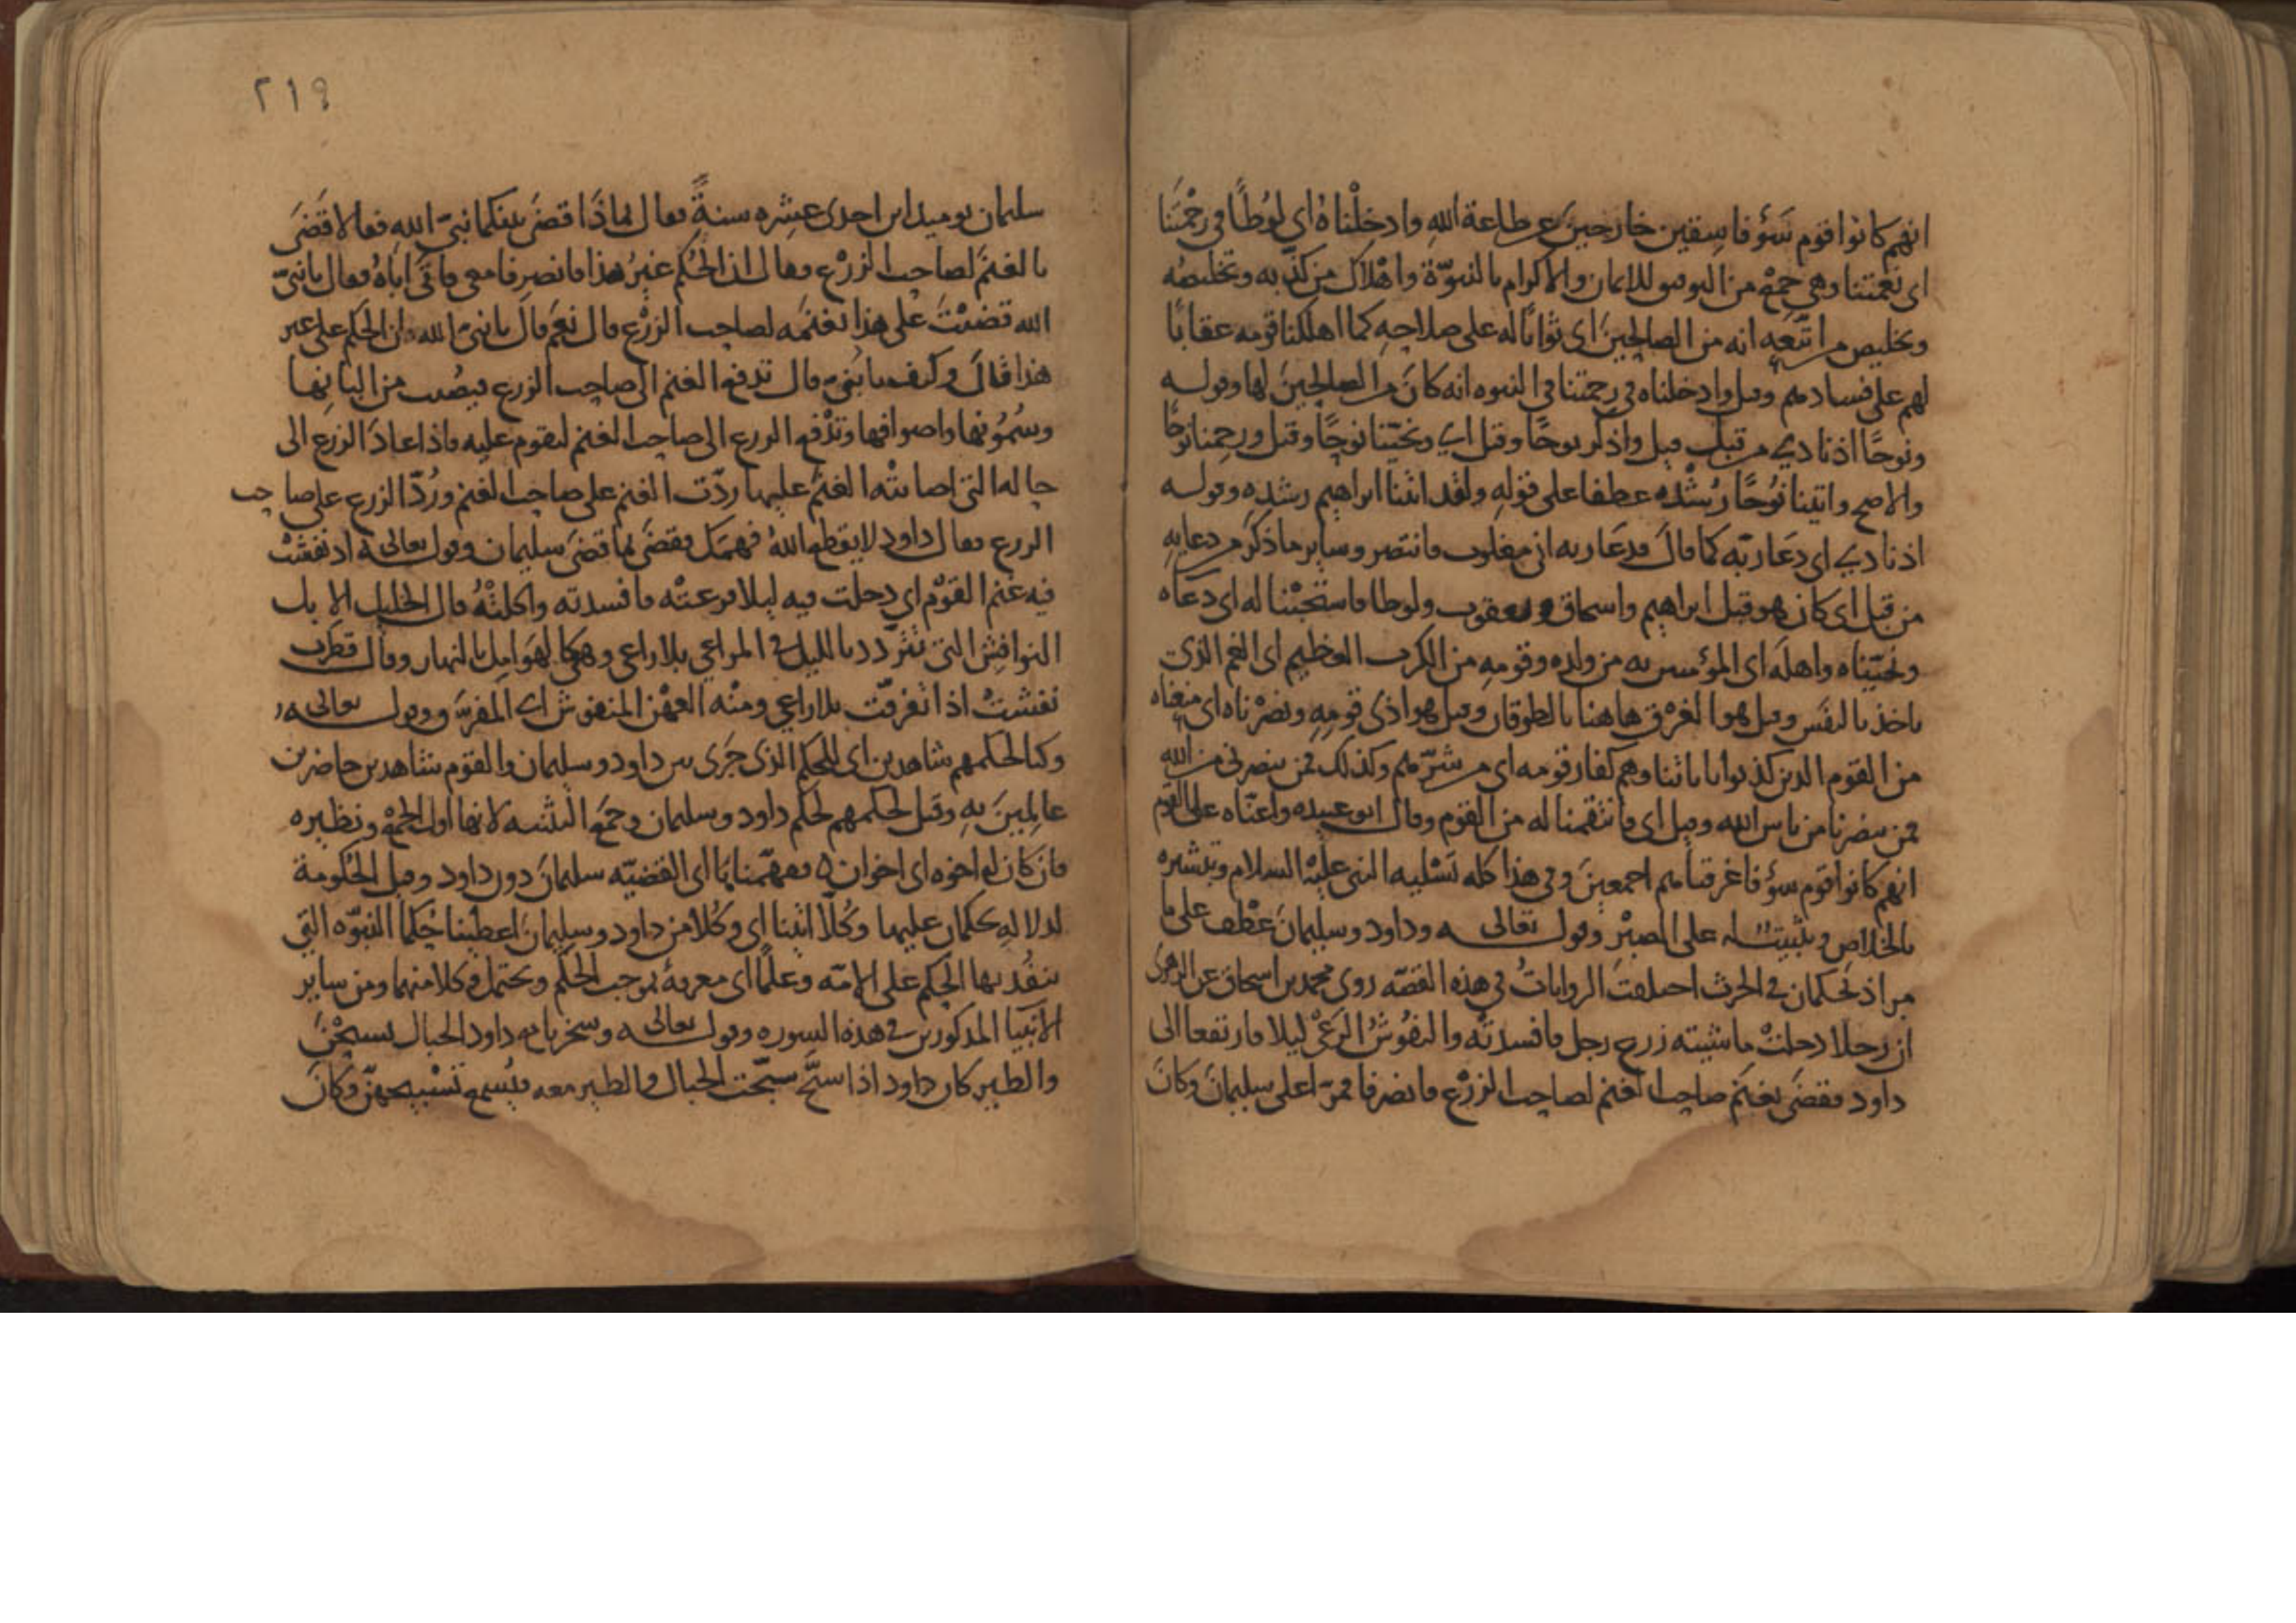 انهم كانوا قوم سؤ فاسقين خارجين عن طاعة الله وادخلناه اى لوطا فى رحمتنا
اى نعمتنا وهى جمع من التوفيق للايمان والاكرام بالنبوة واهلاك من كذب به وتخليصه
وتخليص من اتبعه انه من الصالحين اى ثوابا له على صلاحه كما اهلكنا قومه عقابا
لهم على فسادهم وقيل وادخلناه فى رحمتنا فى النبوه انه كان من الصالحين لها وقوله
ونوحا اذ نادى من قبل قيل واذكر نوحا وقيل اى ونجينا نوحا وقيل ورحمنا نوحا
والاصح واتينا نوحا رشده عطفا على قوله ولقد اتينا ابراهيم رشده وقوله
اذ نادى اى دعا ربه كما قال فدعا ربه انى مغلوب فانتصر وساير ما ذكر من دعايه
من قبل اى كان هو قبل ابراهيم واسحاق ويعقوب ولوطا فاستجبنا له اى دعاه
ونجيناه واهله اى المؤمنين به من ولده وقومه من الكرب العظيم اى الغم الذى
ياخذ بالنفس وقيل هو الغرق هاهنا بالطوفان وقيل هو اذى قومه ونصرناه اى منعناه
من القوم الذين كذبوا باياتنا وهم كفار قومه اى من شرهم وكذلك فمن ينصرنى من الله
فمن ينصرنا من باس الله وقيل اى فانتقمنا له من القوم وقال ابو عبيده واعناه على القوم
انهم كانوا قوم سؤ فاغرقناهم اجمعين وفى هذا كله تسليه النبى عليه السلام وتبشيره
بالخلاص وتثبيت له على الصبر وقوله تعالى وداود وسليمان عطف على ما
مر اذ يحكمان فى الحرث اختلفت الروايات فى هذه القصه روى محمد بن اسحاق عن الزهرى
ان رجلا دخلت ماشيته زرع رجل فافسدته والنفوش الرعى ليلا فارتفعا الى
داود فقضى بغنم صاحب الغنم لصاحب الزرع فانصرفا فمرا على سليمان وكان
٢١٩
سليمان يوميذ ابن احدى عشره سنة فقال بماذا قضى بينكما نبى الله فقالا قضى
بالغنم لصاحب الزرع فقال ان الحكم غير هذا فانصرفا معى فاتى اباه فقال يا نبى
الله قضيت على هذا بغنمه لصاحب الزرع قال نعم قال يا نبى الله ان الحكم على غير
هذا قال وكيف يا بنى قال تدفع الغنم الى صاحب الزرع فيصيب من البانها
وسمونها واصوافها وتدفع الزرع الى صاحب الغنم ليقوم عليه فاذا عاد الزرع الى
حاله التى اصابته الغنم عليها ردت الغنم على صاحب الغنم ورد الزرع على صاحب
الزرع فقال داود لا يقطع الله فهمك فقضى بما قضى سليمان وقوله تعالى اذ نفشت
فيه غنم القوم اى دخلت فيه ليلا فرعته فافسدته واكلته قال الخليل الابل
النوافش التى تتردد بالليل فى المراعى بلا راعى وهى كالهوامل بالنهار وقال قطرب
نفشت اذا تفرقت بلا راعى ومنه العهن المنفوش اى المفرق وقوله تعالى
وكنا لحكمهم شاهدين اى للحكم الذى جرى بين داود وسليمان والقوم شاهدين حاضرين
عالمين به وقيل لحكمهم لحكم داود وسليمان وجمع التثنيه لانها اول الجمع ونظيره
فان كان له اخوه اى اخوان ففهمناها اى القضيه سليمان دون داود وقيل الحكومة
لدلاله يحكمان عليها وكلا اتينا اى وكلا من داود وسليمان اعطينا حكما النبوه التى
ينفذ بها الحكم على الامه وعلما اى معرفة بموجب الحكم ويحتمل وكلا منهما ومن ساير
الانبيا المذكورين فى هذه السوره وقوله تعالى وسخرنا مع داود الجبال يسبحن
والطير كان داود اذا سبح سبحت الجبال والطير معه فيسمع تسبيحهن وكان